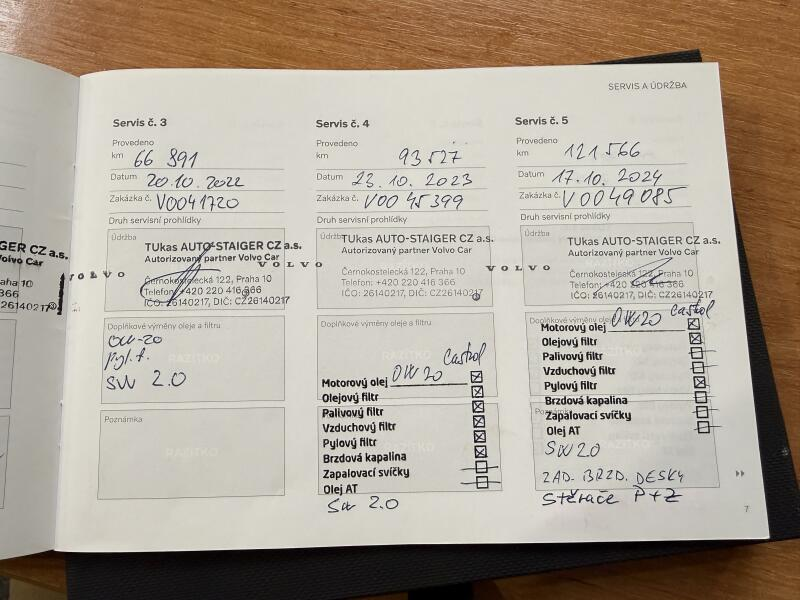 SERVIS A ÚDRŽBA
Servis č. 3
Provedeno
km 66 891
Datum 20.10.2022
Zakázka č. V0041720
Druh servisní prohlídky
Údržba
TUkas AUTO-STAIGER CZ a.s.
Autorizovaný partner Volvo Car
VOLVO
Černokostelecká 122, Praha 10
Telefon: +420 220 416 366
IČO: 26140217, DIČ: CZ26140217
Doplňkové výměny oleje a filtru
OW-20
Pyl. f.
RAZÍTKO
SW 2.0
Poznámka
RAZÍTKO
Servis č. 4
Provedeno
km 93 527
Datum 23.10.2023
Zakázka č. V0045399
Druh servisní prohlídky
Údržba
TUkas AUTO-STAIGER CZ a.s.
Autorizovaný partner Volvo Car
VOLVO
Černokostelecká 122, Praha 10
Telefon: +420 220 416 366
IČO: 26140217, DIČ: CZ26140217
Doplňkové výměny oleje a filtru
RAZÍTKO
Castrol
Motorový olej OW20
Olejový filtr
Palivový filtr
Vzduchový filtr
Pylový filtr
Brzdová kapalina
Zapalovací svíčky
Olej AT
SW 2.0
Servis č. 5
Provedeno
km 121 566
Datum 17.10.2024
Zakázka č. V0049085
Druh servisní prohlídky
Údržba
TUkas AUTO-STAIGER CZ a.s.
Autorizovaný partner Volvo Car
VOLVO
Černokostelecká 122, Praha 10
Telefon: +420 220 416 366
IČO: 26140217, DIČ: CZ26140217
Castrol
Motorový olej OW20
Olejový filtr
Palivový filtr
Vzduchový filtr
Pylový filtr
Brzdová kapalina
Zapalovací svíčky
Olej AT
SW20
ZAD. BRZD. DESKY
Stěrače P+Z
7